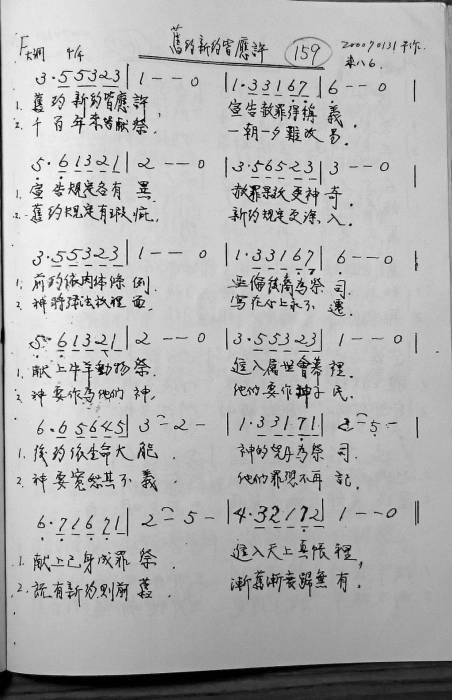 舊約新約皆應許 159 20070131下午.
F大調 4/4 來八6.
3·55323 | 1 - - 0 | 1·33167 | 6 - - 0 |
1. 舊約新約皆應許, 宣告赦罪得稱義.
2. 千百年來皆獻祭, 一朝一夕難改易.
5·61321 | 2 - - 0 | 3·56523 | 3 - - 0 |
1. 宣告規定各有異. 赦罪果效更神奇.
2. 舊約規定有瑕疵, 新約規定更深入.
3·55323 | 1 - - 0 | 1·33167 | 6 - - 0 |
1. 前約依肉体條例. 亞倫後裔為祭司.
2. 神將律法放裡面, 寫在心上永不遷.
5·61321 | 2 - - 0 | 3·55323 | 1 - - 0 |
1. 献上牛羊動物祭. 進入屬世會幕裡.
2. 神要作為他們神, 他們要作神子民.
6·65645 | 3 - 2 - | 1·33171 | 2 - 5 - |
1. 後約依生命大能. 神的兒子為祭司.
2. 神要寬恕其不義. 他們罪愆不再記.
6·71671 | 2 - 5 - | 4·32172 | 1 - - 0 ||
1. 献上己身成罪祭. 進入天上真帳裡,
2. 既有新約則前舊. 漸舊漸衰歸無有.